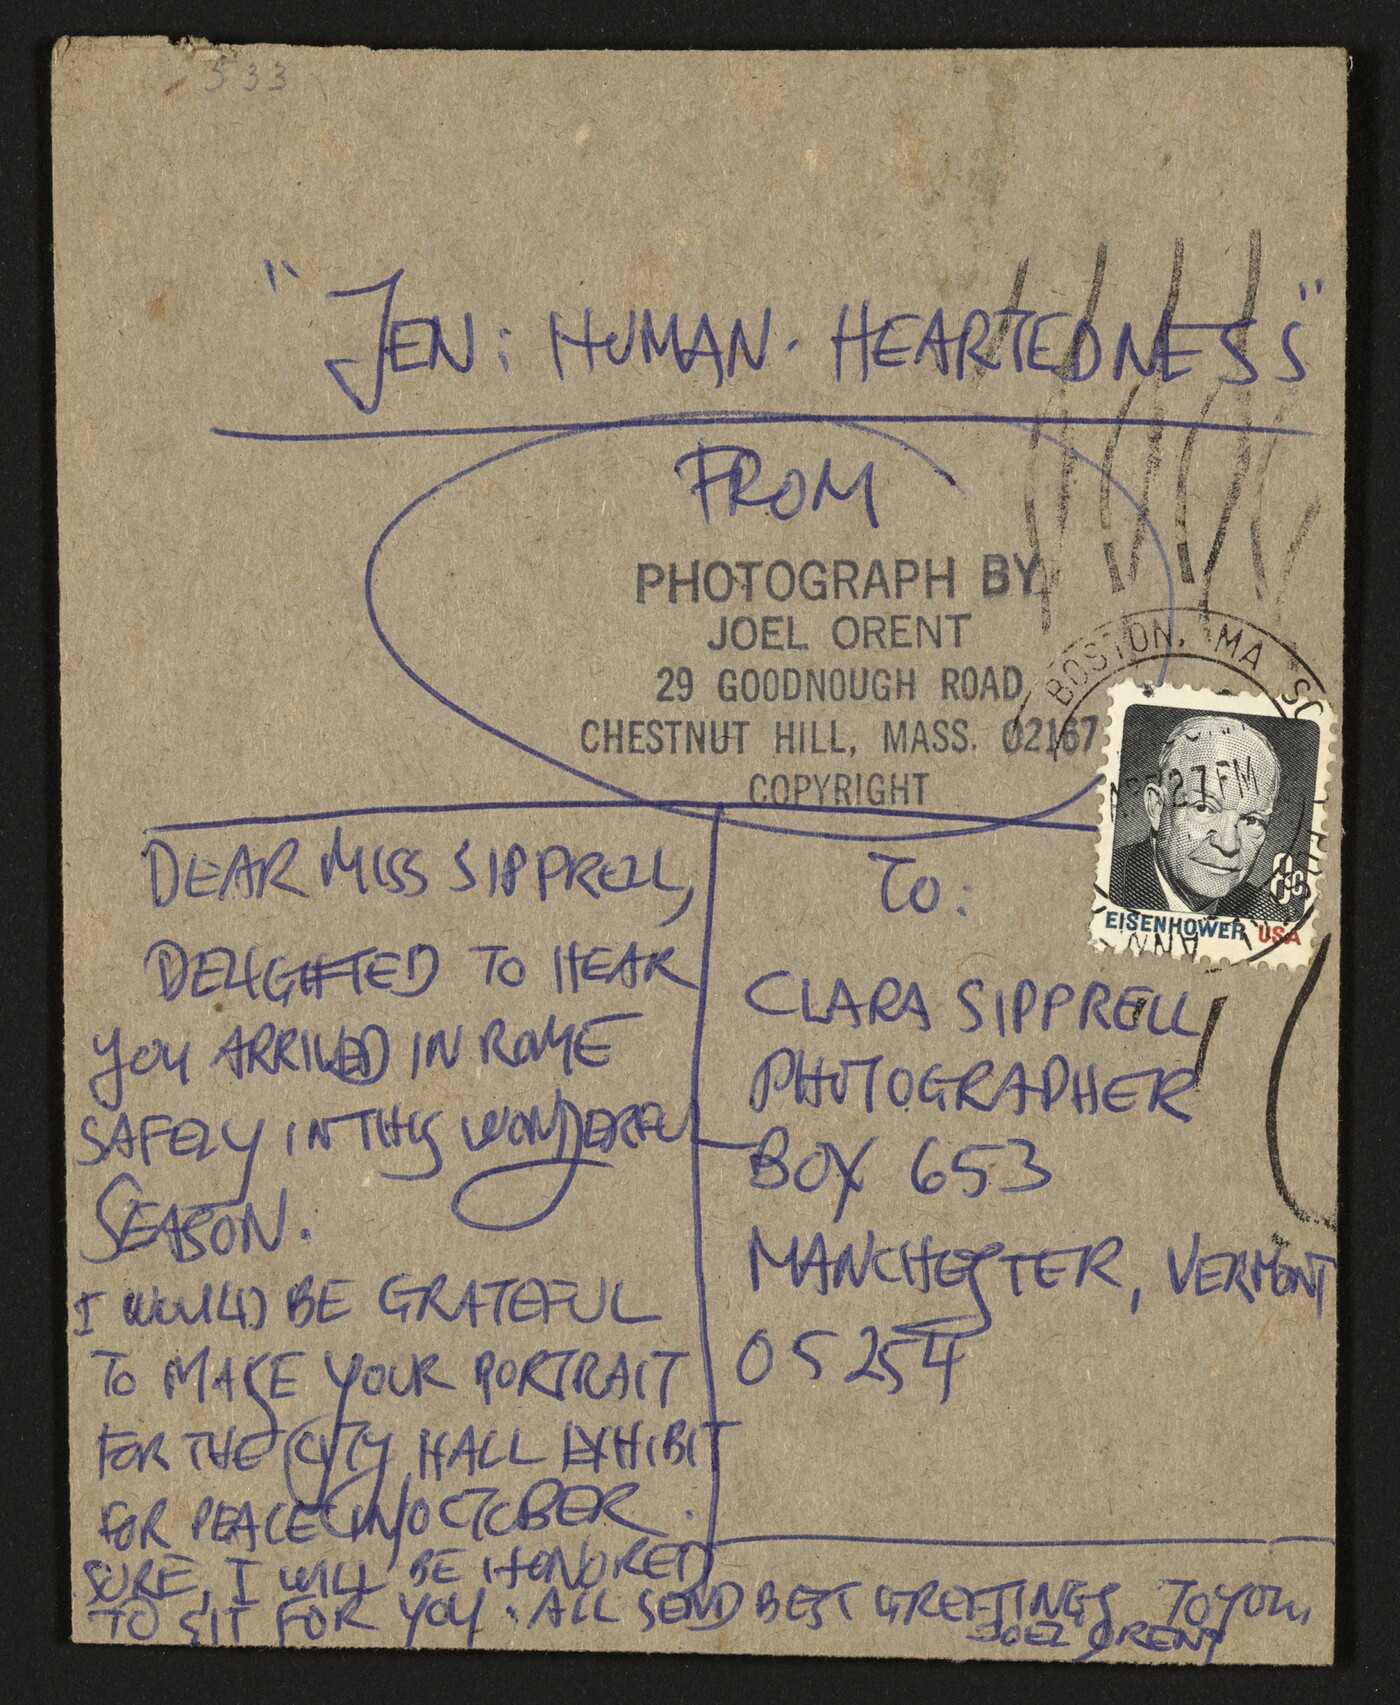 533
"JEN: HUMAN-HEARTEDNESS"
FROM
PHOTOGRAPH BY
JOEL ORENT
29 GOODNOUGH ROAD
CHESTNUT HILL, MASS. 02167
COPYRIGHT
BOSTON, MA
27 PM
8c
EISENHOWER USA
DEAR MISS SIPPRELL,
DELIGHTED TO HEAR
YOU ARRIVED IN ROME
SAFELY IN THIS WONDERFUL
SEASON.
I WOULD BE GRATEFUL
TO MAKE YOUR PORTRAIT
FOR THE CITY HALL EXHIBIT
FOR PEACE IN OCTOBER.
SURE, I WILL BE HONORED
TO SIT FOR YOU. ALL SEND BEST GREETINGS TO YOU,
JOEL ORENT
TO:
CLARA SIPPRELL
PHOTOGRAPHER
BOX 653
MANCHESTER, VERMONT
05254